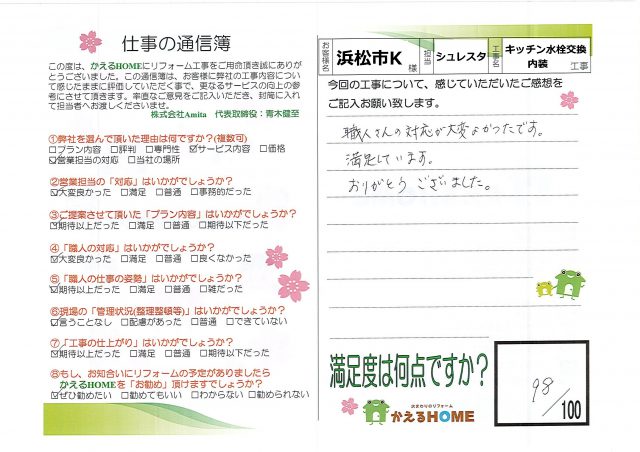 仕事の通信簿
この度は、かえるHOMEにリフォーム工事をご用命頂き誠にありが
とうございました。この通信簿は、お客様に弊社の工事内容につい
て感じたままに評価していただく事で、更なるサービスの向上の参
考にさせて頂きます。率直なご意見をご記入いただき、封筒に入れ
て担当者へお渡しくださいませ。
株式会社Amita 代表取締役：青木健至
①弊社を選んで頂いた理由は何ですか?(複数可)
□プラン内容 □評判 □専門性 ☑サービス内容 □価格
☑営業担当の対応 □当社の場所
②営業担当の「対応」はいかがでしょうか?
☑大変良かった □満足 □普通 □事務的だった
③ご提案させて頂いた「プラン内容」はいかがでしょうか?
☑期待以上だった □満足 □普通 □期待以下だった
④「職人の対応」はいかがでしょうか?
☑大変良かった □満足 □普通 □良くなかった
⑤「職人の仕事の姿勢」はいかがでしょうか?
☑期待以上だった □満足 □普通 □雑だった
⑥現場の「管理状況(整理整頓等)」はいかがでしょうか?
☑言うことなし □配慮があった □普通 □できていない
⑦,「工事の仕上がり」はいかがでしょうか?
☑期待以上だった □満足 □普通 □期待以下だった
⑧もし、お知合いにリフォームの予定がありましたら
かえるHOMEを「お勧め」頂けますでしょうか?
☑ぜひ勧めたい □勧めてもいい □わからない □勧められない
お客様名 浜松市K 様 担当 シュレスタ 工事名 キッチン水栓交換
内装 工事
今回の工事について、感じていただいたご感想を
ご記入お願い致します。
職人さんの対応が大変よかったです。
満足しています。
ありがとうございました。
満足度は何点ですか?
98/100
水まわりのリフォーム
かえるHOME